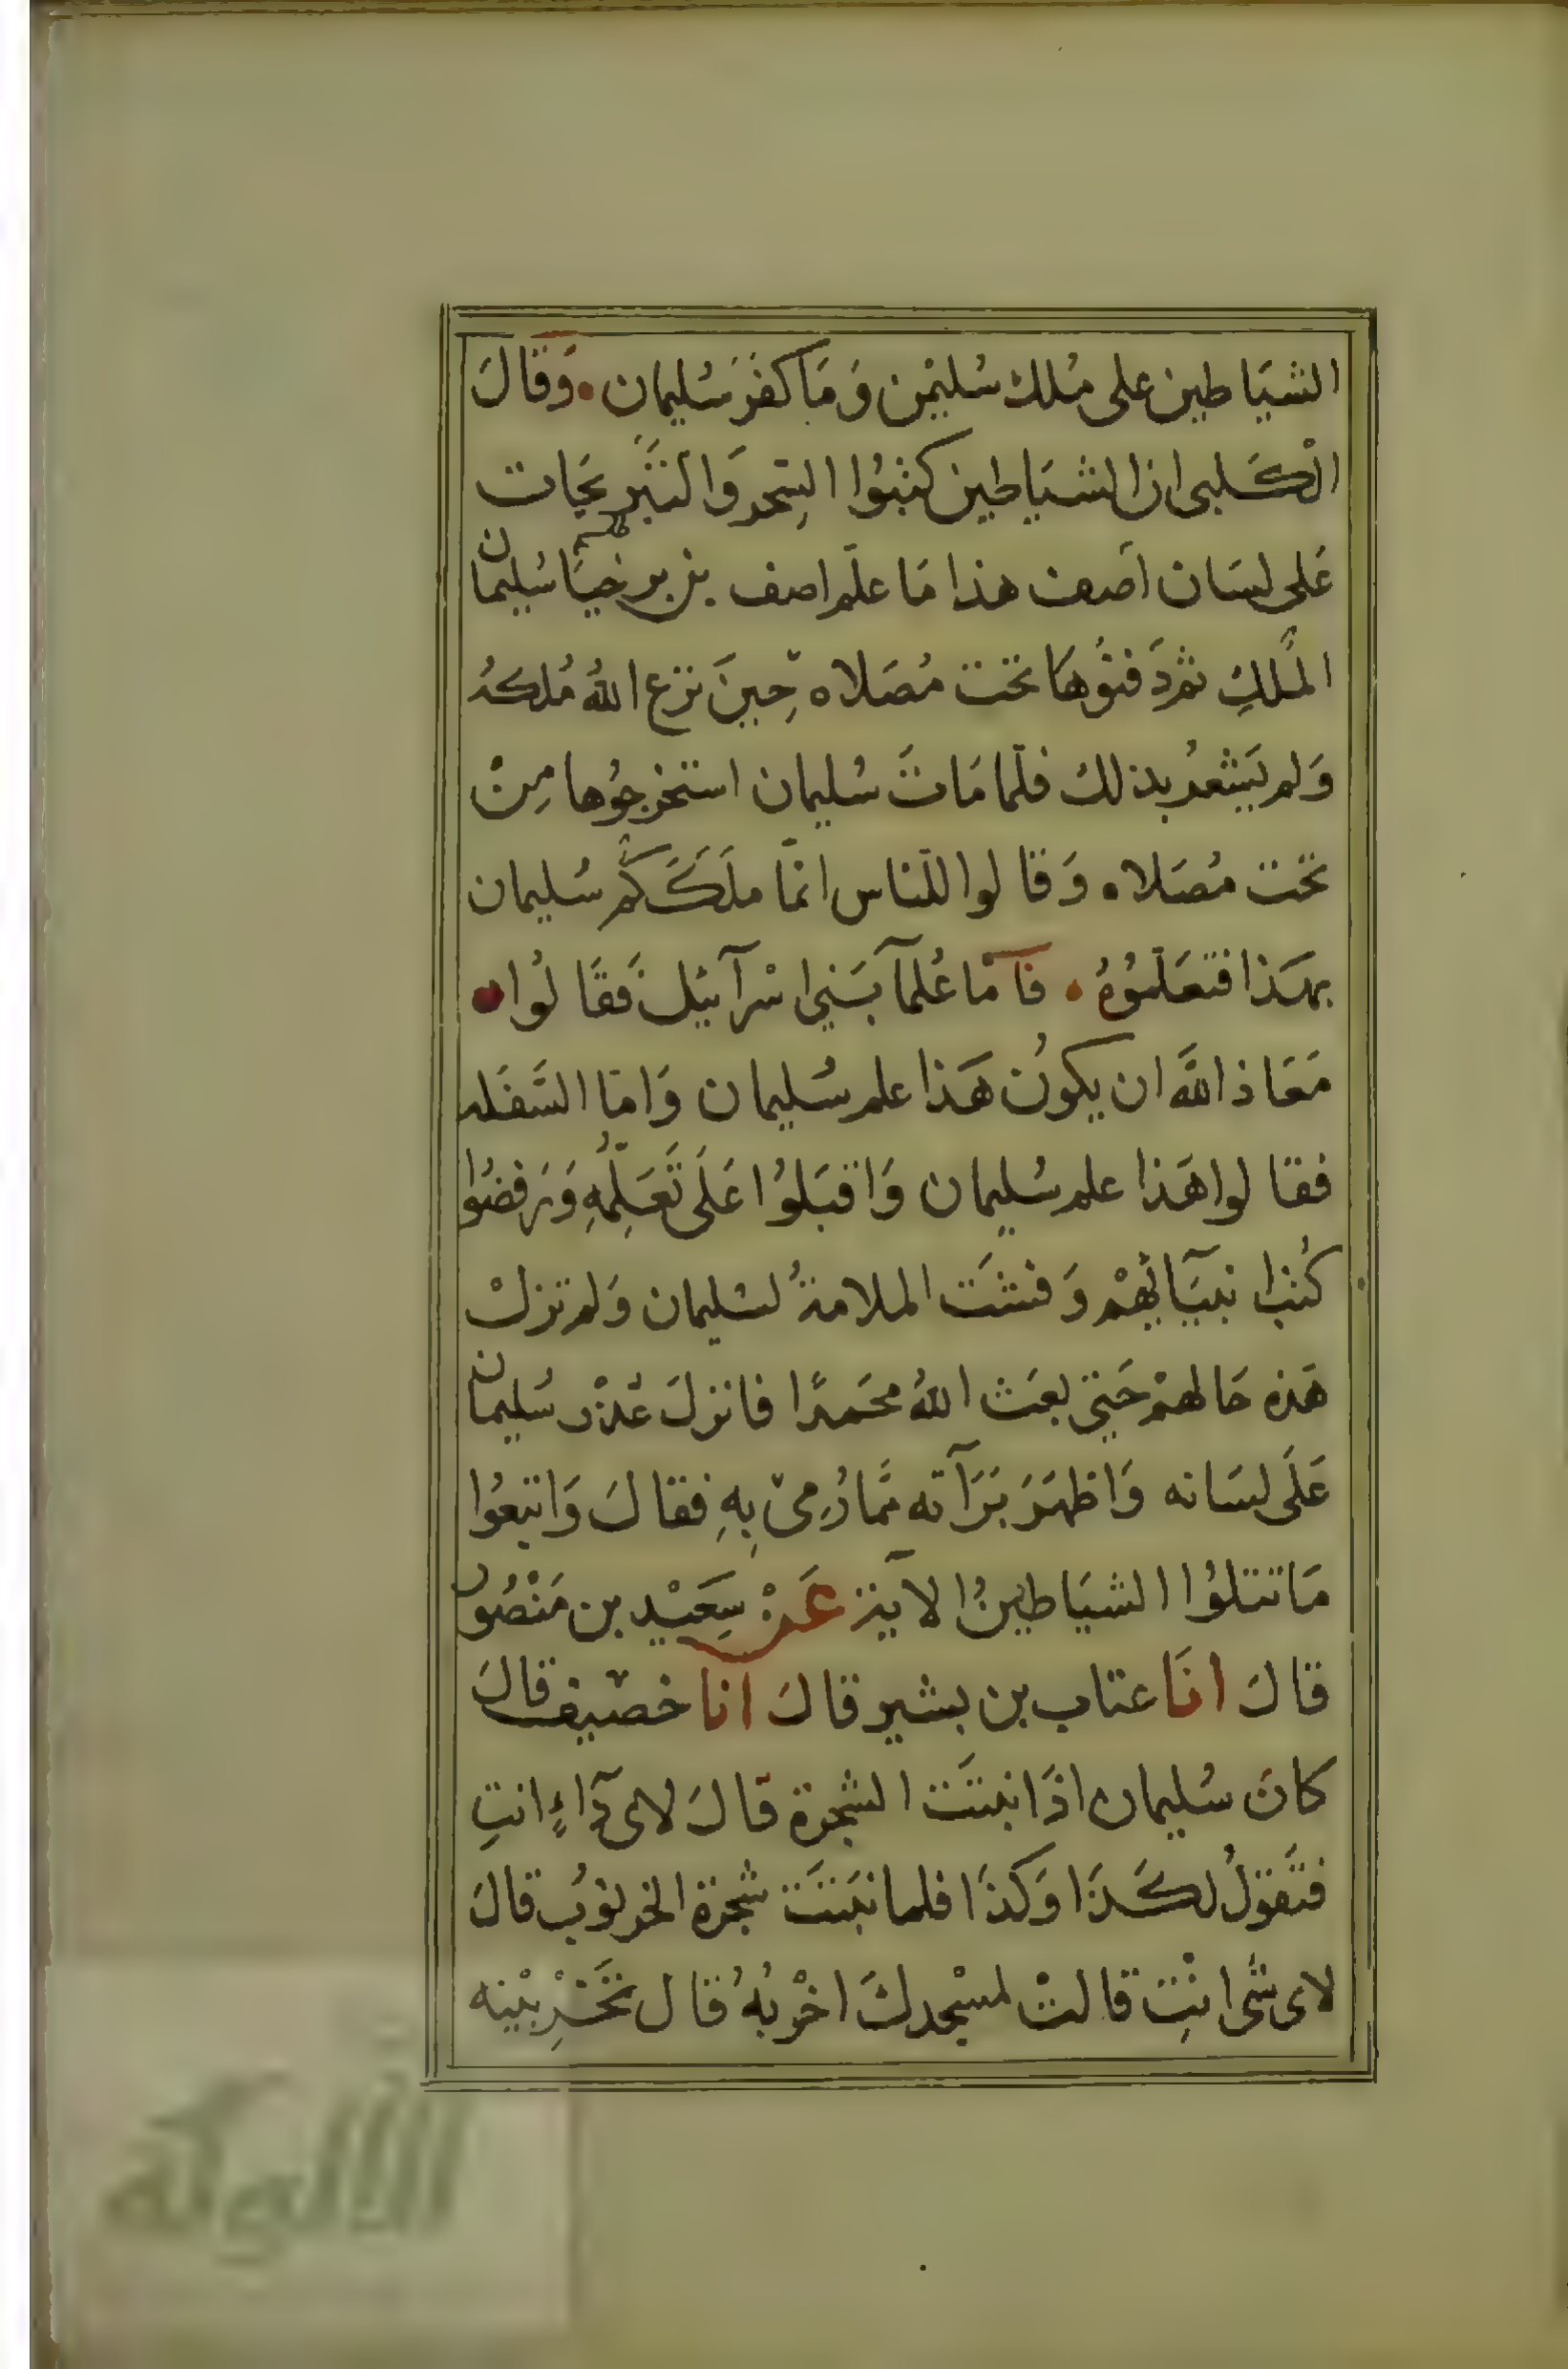 الشيَاطين على مُلك سُليمٰن وَمَا كفَرَ سُليمان • وَقالَ
الْكَلبى ان الشيَاطين كتبُوا السِّحر وَالنَّيْرنجات
عَلى لسَان آصف هذا مَا علّم اصف بن برخيَا سُليمان
المَلكِ ثم دَفنُوهَا تحت مُصَلاه حِينَ نزع اللهُ مُلكهُ
وَلم يَشعُر بذلك فلمّا مَاتَ سُليمان استخرجُوها مِنْ
تحت مُصَلاه وَقالوا للنّاس انمّا مَلَكَكُم سُليمان
بهَذا فتعَلمُوهُ • فَأمّا عُلمآ بَني اسْرآئيل فَقَالُوا •
مَعَاذ اللهَ ان يكونُ هَذا علم سُليمان وَامّا السَّفَله
فقالوا هَذا علم سُليمان وَاقبَلُوا عَلَى تَعَلّمِهِ وَرَفضُوا
كُتب انبيَآئهمْ وَفشَت الملامةُ لسُليمان وَلم تزلْ
هَذه حَالهمْ حَتى بعَث اللهُ محَمدًا فانزلَ عُذْر سُليمان
عَلَى لسَانه وَاظهَرَ بَرَآته ممَّا رُمىَ بِهِ فقالَ وَاتبعُوا
مَا تتلوُا الشيَاطينُ الآية عَنْ سَعيْد بن مَنْصُور
قالَ انَا عتاب بن بشير قالَ انا خصَيف قالَ
كانَ سُليمان اذَا نبتَت الشجرة قالَ لاى دَآءٍ انتِ
فتَقولُ لكَذَا وَكذَا فلما نبَتَت شجرة الخرنوُب قالَ
لاى شَى انْتِ قالتْ لمسْجدكَ اخْربُهُ قال تخَرْبِيْنه
الألوكة